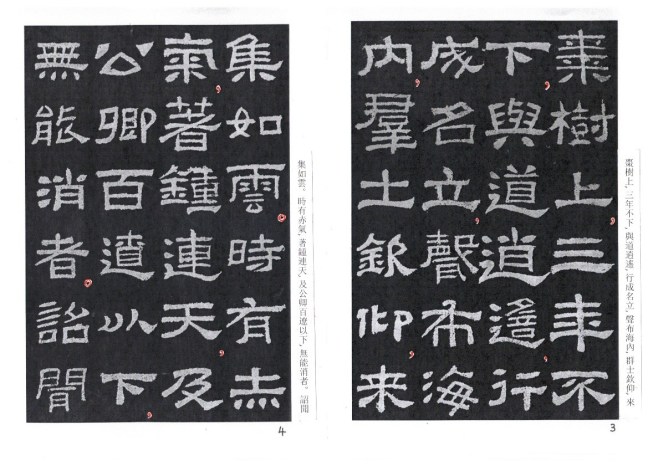 棗樹上，三年不下，與道逍遙，行成名立，聲布海內，群士欽仰，來
棗樹上，三年不
下，與道逍遙，行
成名立，聲布海
內，羣士欽仰，來
3
集如雲。時有赤氣，著鍾連天，及公卿百遼以下，無能消者。詔聞
集如雲。時有赤
氣，著鍾連天，及
公卿百遼以下，
無能消者。詔聞
4